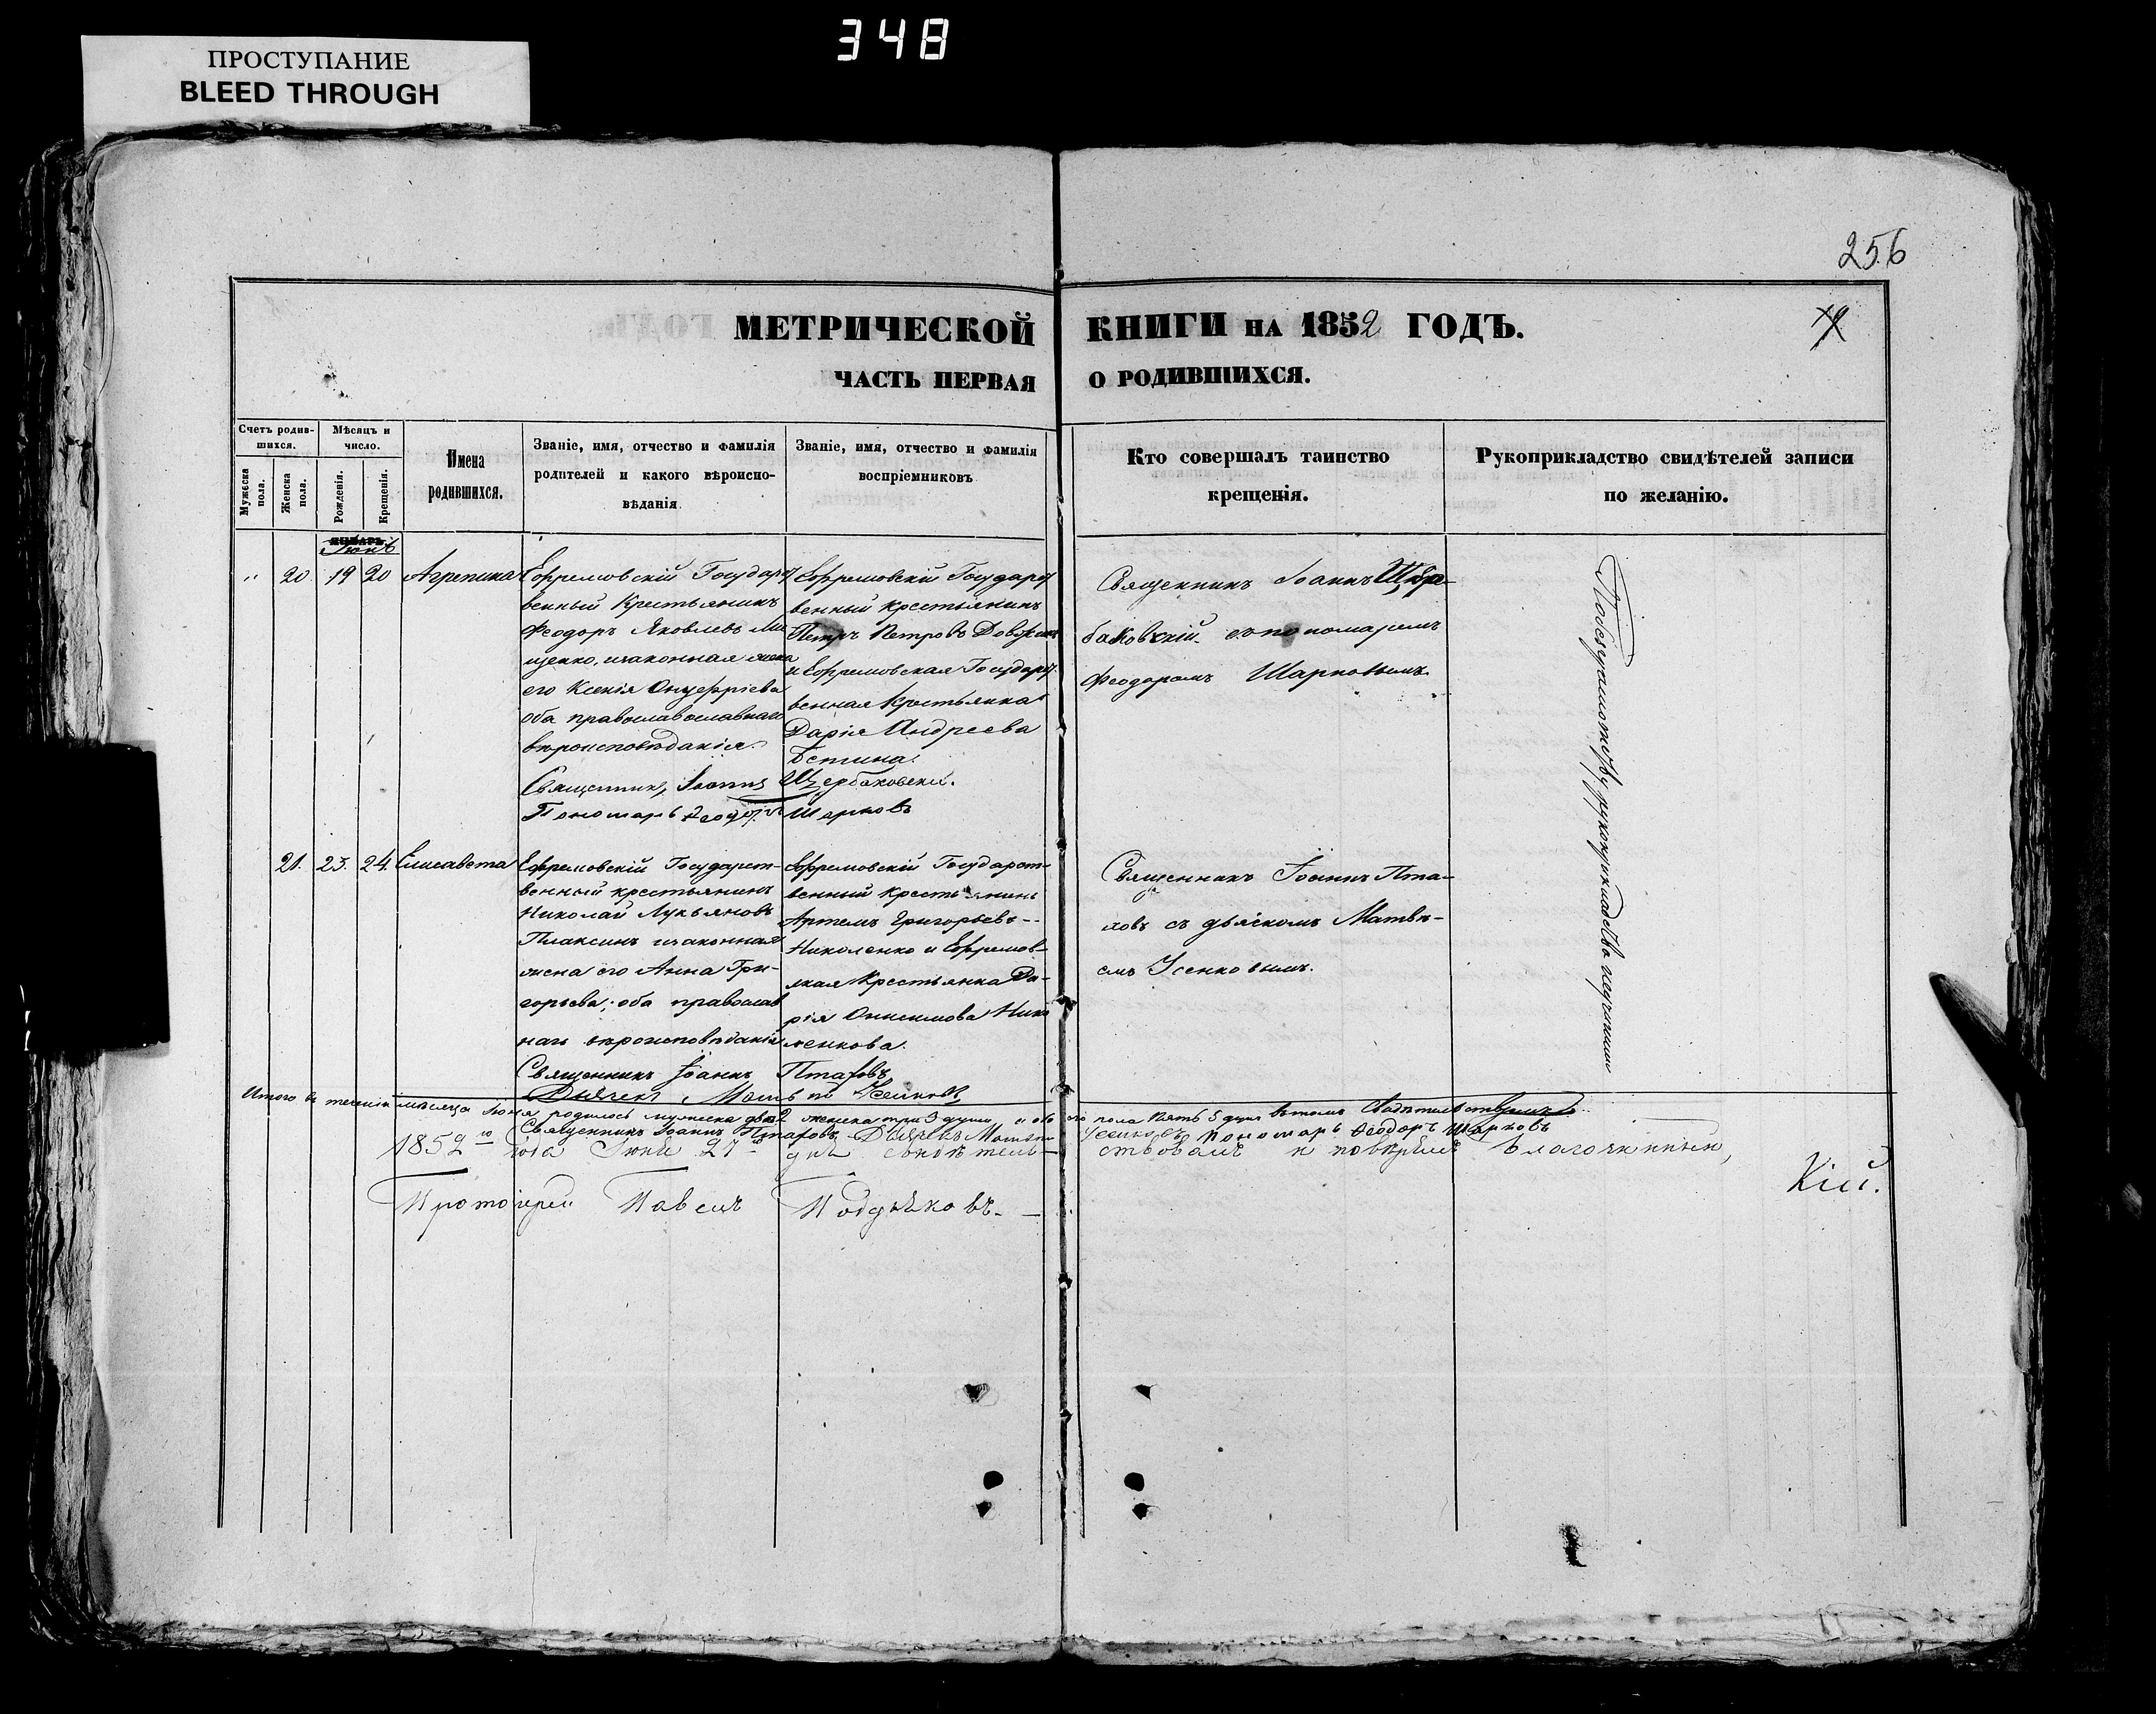 348
ПРОСТУПАНИЕ
BLEED THROUGH
256
МЕТРИЧЕСКОЙ КНИГИ НА 1852 ГОДЪ.
ЧАСТЬ ПЕРВАЯ О РОДИВШИХСЯ.
Счетъ родив-
шихся.
Мужеска
пола.
Женска
пола.
Мѣсяцъ и
число.
Рожденія.
Крещенія.
Имена
родившихся.
Званіе, имя, отчество и фамилія
родителей и какого вѣроиспо-
вѣданія
Званіе, имя, отчество и фамилія
воспріемниковъ
Кто совершалъ таинство
крещенія.
Рукоприкладство свидѣтелей записи
по желанію.
Іюнь
" 20. 19 20 Агрепина
Ефремовскій Государст
венный Крестьянинъ
Феодоръ Яковлевъ
щенко, изаконная жена
его Ксенія Онуфріева
оба православославнаго
вѣроисповѣданія.
Ефремовскій Государст
венный крестьянинъ
Петръ Петровъ
и Ефремовская Государст
венная Крестьянка
Дарія Андреева
Священникъ Іоаннъ Щербаковскій.
Пономарь Феодоръ Шарковъ
Священникъ Іоаннъ Щерба-
баковскій съ пономаремъ
Феодоромъ Шарковымъ
21. 23. 24. Елисавета
Ефремовскій Государст-
венный крестьянинъ
Николай Лукьяновъ
Плаксинъ изаконная
жена его Анна Гри-
горьева; оба православ
наго вѣроисповѣданія
Ефремовскій Государст-
венный Крестьянинъ
Артемъ Григорьевъ
Николенко и Ефремов-
ская Крестьянка Да-
рія Онисимова Нико
ленкова.
Священникъ Іоаннъ Птаховъ
Дьячекъ Матвѣй Усенковъ
Священникъ Іоаннъ Пта-
ховъ съ дьячкомъ Матвѣ-
емъ Усенковымъ.
Итого въ теченіи мѣсяца Іюня родилось мужеска два 2 женска три 3 души а обоего пола пять 5 душъ въ томъ свидѣтельствуемъ
Священникъ Іоаннъ Птаховъ Дьячекъ Матвѣй Усенковъ Пономарь Феодоръ Шарковъ
1852го года Іюня 27 дня свидѣтельствовалъ и повѣрялъ Благочинный,
Протоіерей Павелъ Поддьяковъ.